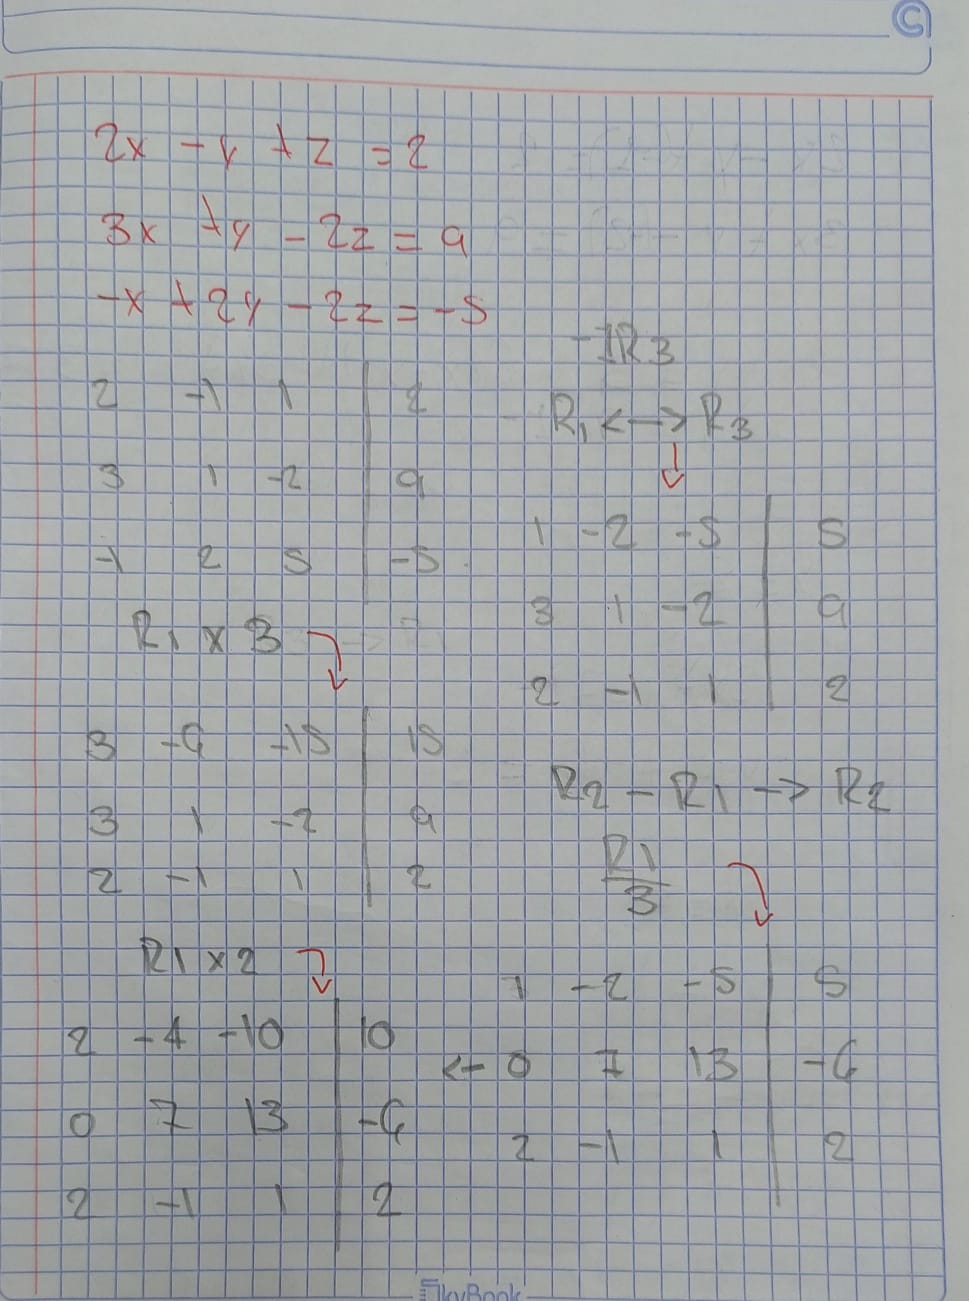 2x - y + z = 2
3x + y - 2z = 9
-x + 2y - 2z = -5
2 -1 1 | 2
3 1 -2 | 9
-1 2 5 | -5
-1R3
R1 <-> R3
1 -2 -5 | 5
3 1 -2 | 9
2 -1 1 | 2
R1 x 3
3 -6 -15 | 15
3 1 -2 | 9
2 -1 1 | 2
R2 - R1 -> R2
R1
3
1 -2 -5 | 5
<- 0 7 13 | -6
2 -1 1 | 2
R1 x 2
2 -4 -10 | 10
0 7 13 | -6
2 -1 1 | 2
SkyBook